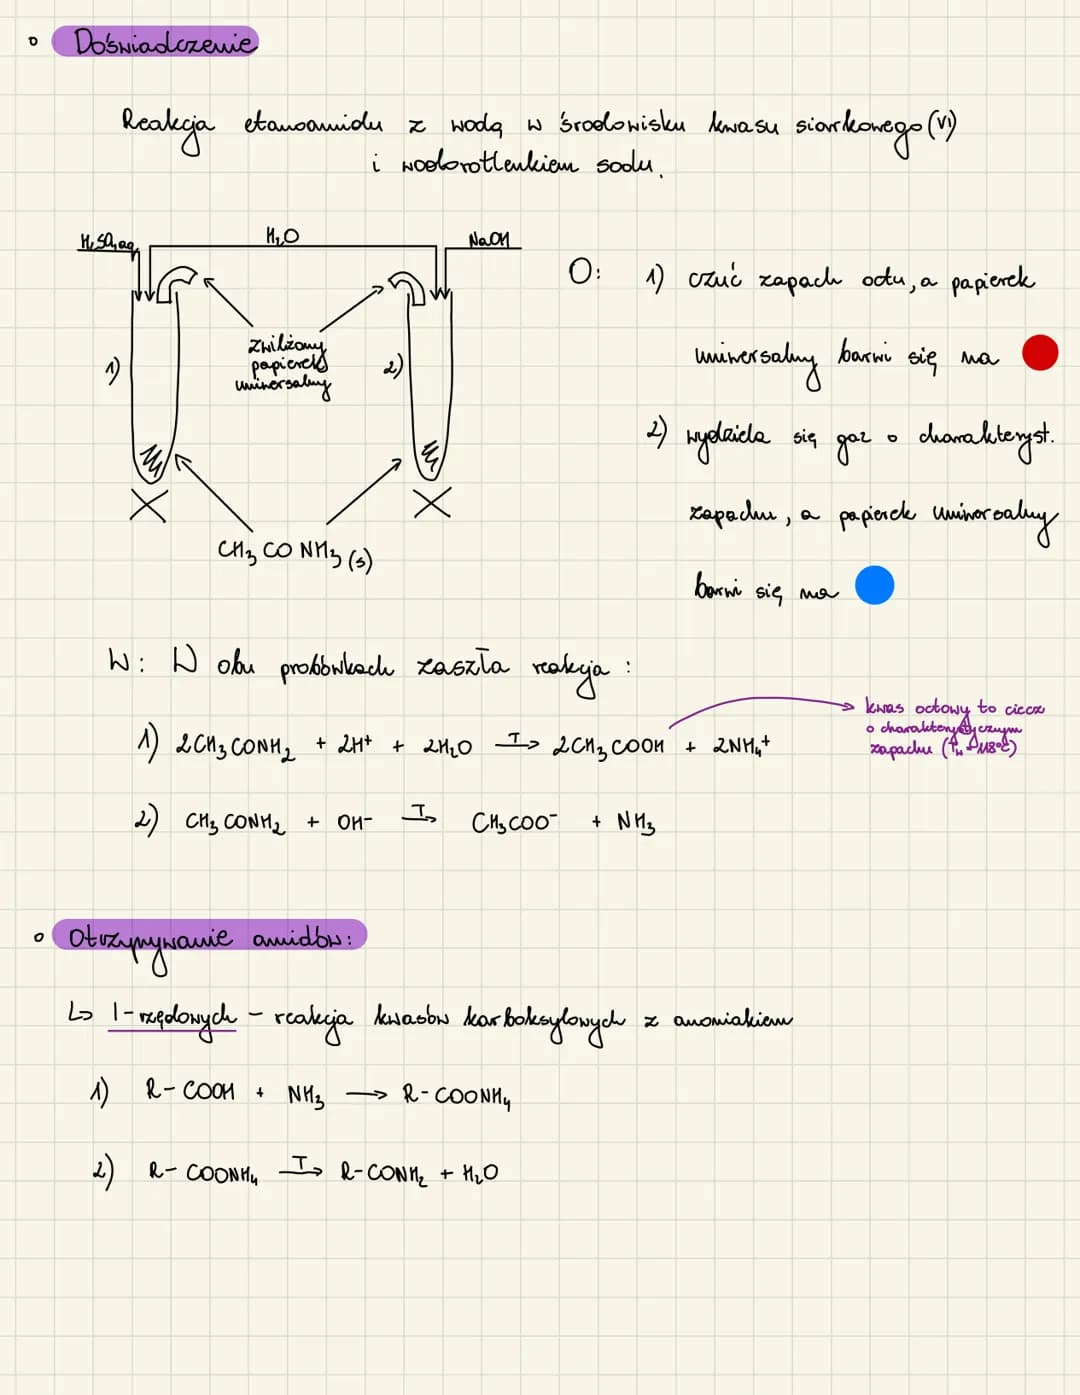 Doświadczenie
Reakcja etanoamidu z wodą w środowisku kwasu siarkowego (VI)
i wodorotlenkiem sodu.
H₂SO₄ aq
H₂O
NaOH
O: 1) czuć zapach octu, a papierek
uniwersalny barwi się na
2) wydziela się gaz o charakteryst.
zapachu, a papierek uniwersalny
barwi się na
1)
zwilżony
papierek
uniwersalny
2)
CH₃ CO NH₃ (s)
W: W obu probówkach zaszła reakcja:
1) 2CH₃CONH₂ + 2H⁺ + 2H₂O T→ 2CH₃COOH + 2NH₄⁺
kwas octowy to ciecz
o charakterystycznym
zapachu (Tw = 118°C)
2) CH₃CONH₂ + OH⁻ T→ CH₃COO⁻ + NH₃
Otrzymywanie amidów:
↳ 1-rzędowych - reakcja kwasów karboksylowych z amoniakiem
1) R-COOH + NH₃ → R-COONH₄
2) R-COONH₄ T→ R-CONH₂ + H₂O